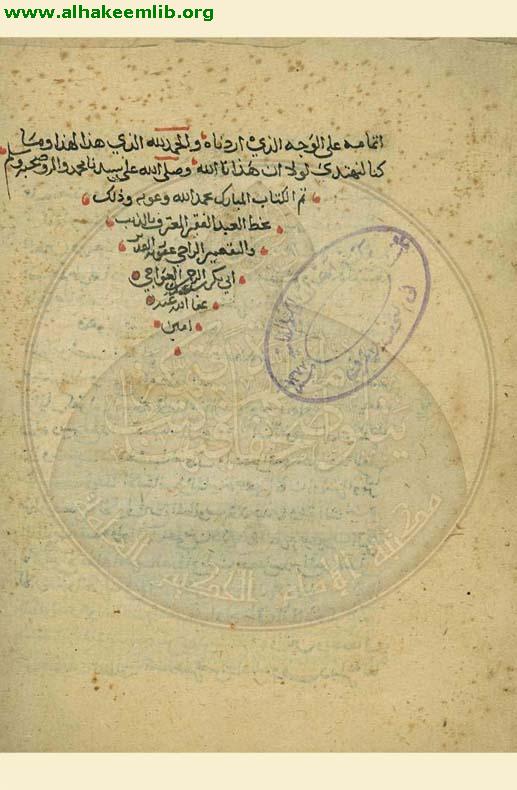 www.alhakeemlib.org
اتمامه على الوجه الذي اردناه والحمد لله الذي هدانا لهذا وما
كنا لنهتدي لولا ان هدانا الله وصلى الله على سيدنا محمد واله وصحبه وسلم
تم الكتاب المبارك بحمد الله وعونه وذلك
بخط العبد الفقير المعترف بالذنب
والتقصير الراجي عفو ربه
ابي بكر
عفا الله عنه
امين
مكتبة الإمام الحكيم العامة